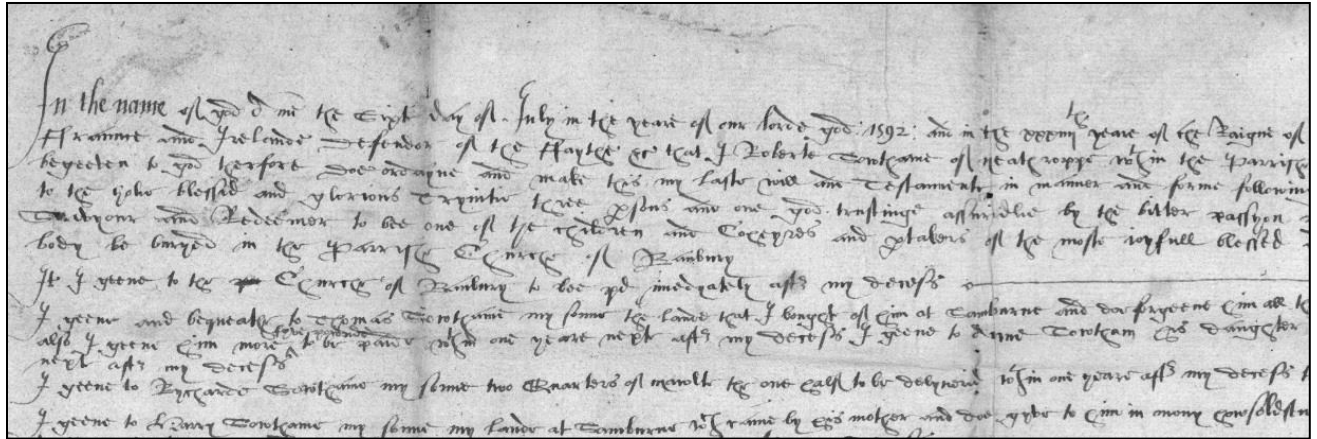 In the name of god me the Sixt day of July in the yeare of our lorde god 1592 and in the xxxiiijth yeare of the Raigne of
ffraunce and Irelande Defendor of the ffaythe &c that I Roberte of neathroppe wthin the Parrishe
to god therfore doe ordayne and make this my laste will and Testamente in manner and forme followin
to the holie blessed and glorious Trynitie three psons and one god trustinge assuridlie by the bitter passyon
and Redeemer to bee one of the children and Coheyres and ptakers of the moste ioyfull blessed
body be buryed in the Parrishe Churche of Banbury
It I geene to the Churche of Banbury to bee pd imediately aftr my decesse
I geene and bequeath to Thomas my sonne the lande that I bought of him at Tamburne and doe forgeene him all th
also I geene him more to be paide wthin one yeare next aftr my decesse I geene to Anne his daughter
next aftr my decesse
I geene to Rycharde my sonne two Quarters of maulte the one half to be delyuerid wthin one yeare aftr my decesse
I geene to Harry my sonne my lande at Tamburne wch came by his mother and doe gyve to him in mony